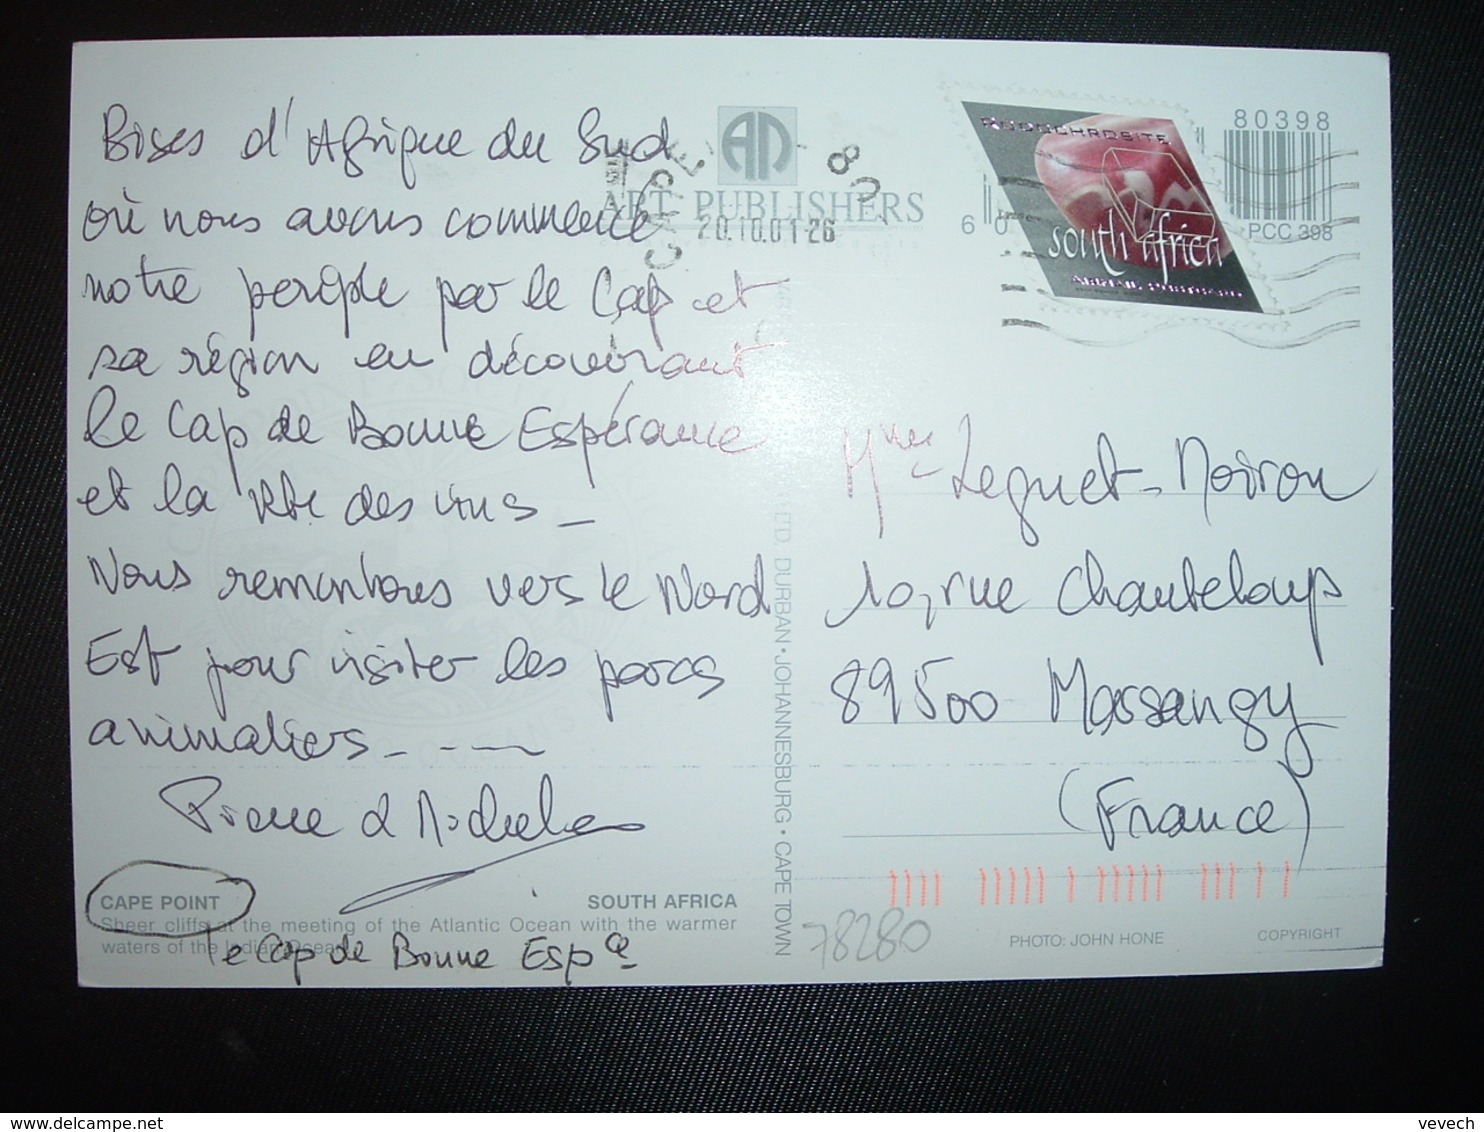 Bises d'Afrique du Sud
où nous avons commencé
notre périple par le Cap et
sa région en découvrant
le Cap de Bonne Espérance
et la Rte des vins _
Nous remontons vers le Nord
Est pour visiter les parcs
animaliers_ _ _ __
Pierre & Michele
CAPE POINT
SOUTH AFRICA
Sheer cliffs at the meeting of the Atlantic Ocean with the warmer
waters of the Indian Ocean
le Cap de Bonne Espce
ART PUBLISHERS
CAPE
20.10.01-26
ETD. DURBAN • JOHANNESBURG • CAPE TOWN
RHODOCHROSITE
south africa
80398
6 0
PCC 398
Mme Leguet-Noiron
10, rue Chanteloup
89500 Massangy
(France)
78280
PHOTO: JOHN HONE
COPYRIGHT
vevech